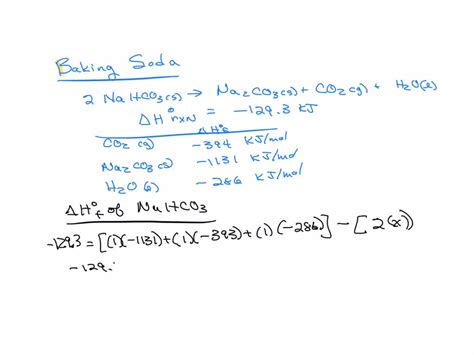 Baking Soda
2 NaHCO3(s) → Na2CO3(s) + CO2(g) + H2O(l)
ΔH°rxn = -129.3 KJ
ΔH°f
CO2 (g) -394 KJ/mol
Na2CO3(s) -1131 KJ/mol
H2O (l) -286 KJ/mol
ΔH°f of NaHCO3
-129.3 = [(1)(-1131)+(1)(-393)+(1)(-286)] - [2(x)]
-129.